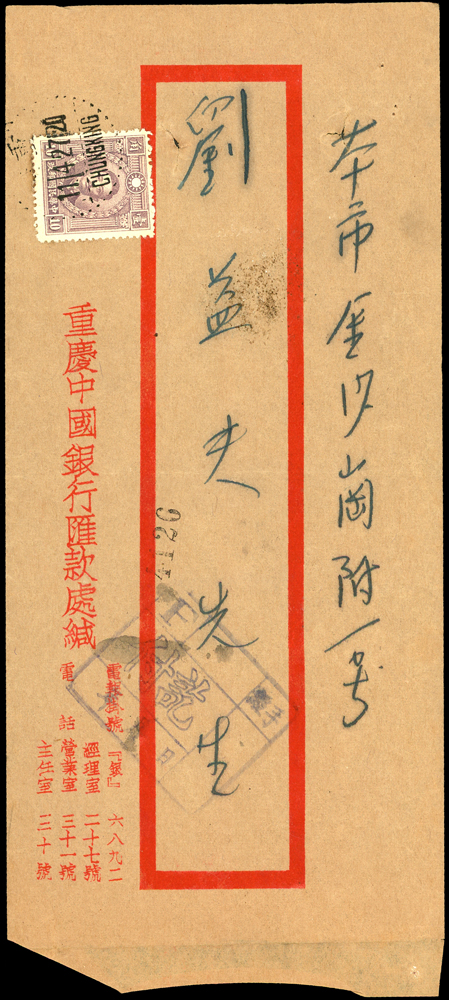 本市金沙崗附一号
劉益夫先生
重慶中國銀行匯款處緘
電報掛號『銀』六八九二
經理室 二十七號
電話 營業室 三十一號
主任室 三十號
11 4 27 20
CHUNGKING
4126